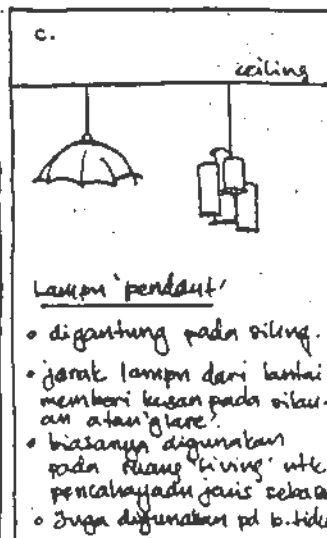 c.
ceiling
Lampu 'pendant'
• digantung pada siling.
• jarak lampu dari lantai
memberi kesan pada silau-
an atau 'glare'.
• biasanya digunakan
pada ruang 'living' utk.
pencahayaan jenis sebaran
• Juga digunakan pd b. tidur